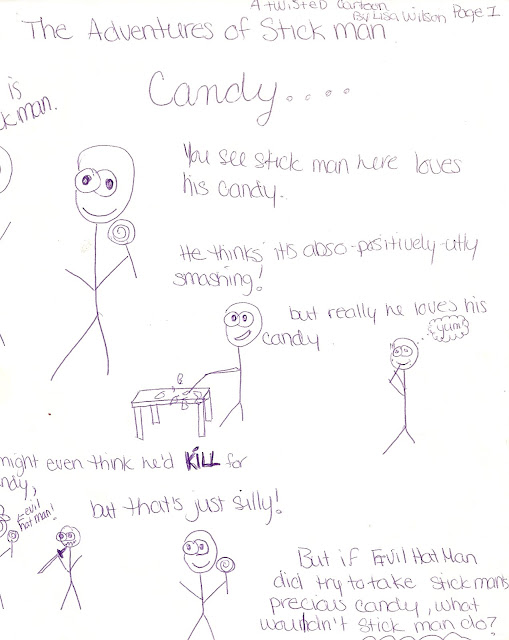 A twisted cartoon
By Lisa Wilson Page 1
The Adventures of Stick man
is
ckman.
Candy....
You see stick man here loves
his candy.
He thinks it's abso-positively-utly
smashing!
but really he loves his
candy
yum!
might even think he'd KILL for
ndy,
evil
hat man!
but that's just silly!
But if Evil Hat Man
did try to take stick man's
precious candy, what
wouldn't stick man do?